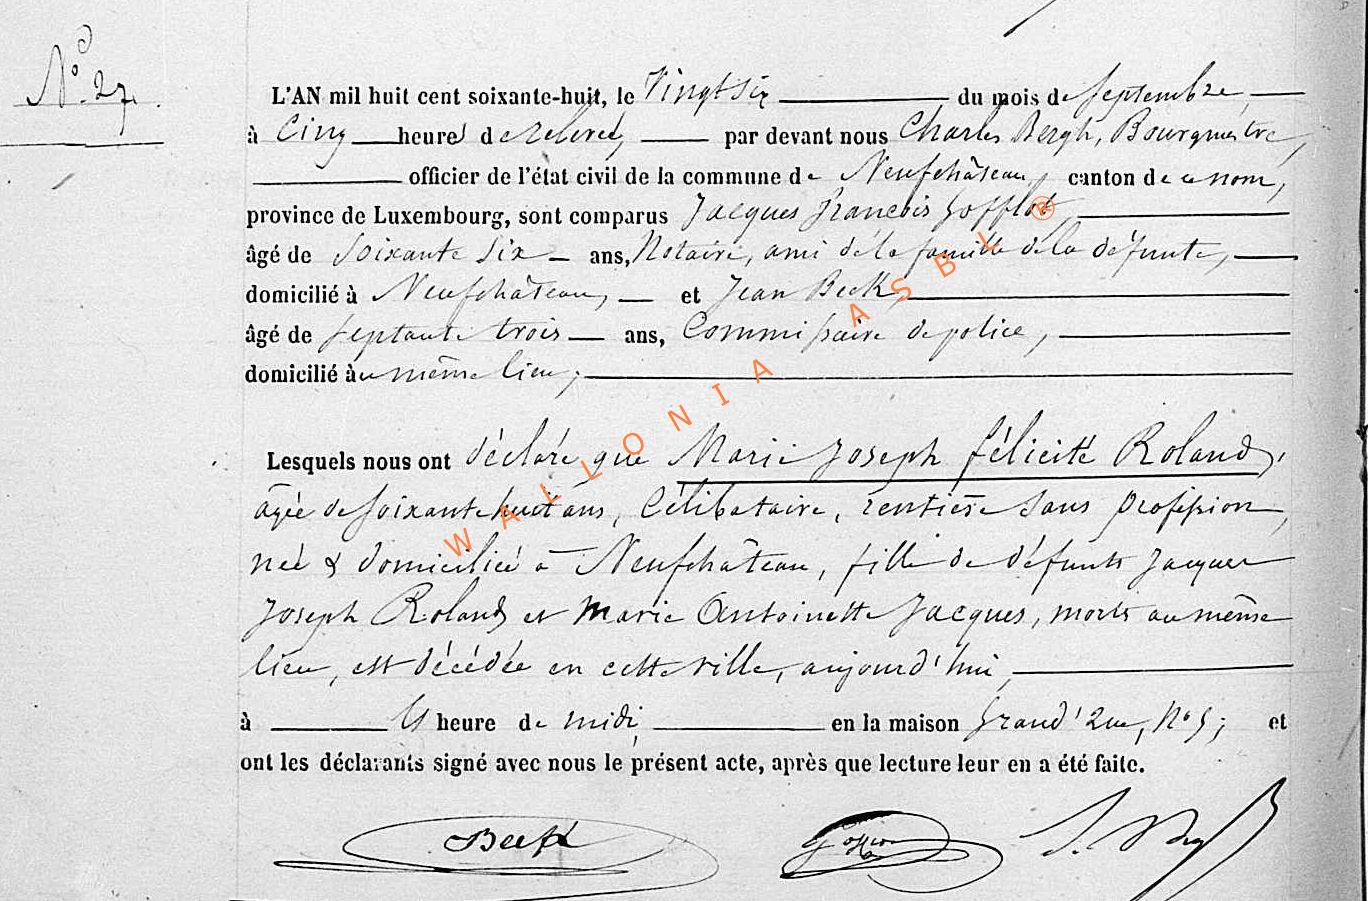 N° 27.
L'AN mil huit cent soixante-huit, le Vingt six du mois de Septembre,
à Cinq heures de relevée, par devant nous Charles Bergh, Bourgmestre,
officier de l'état civil de la commune de Neufchâteau, canton de ce nom,
province de Luxembourg, sont comparus Jacques François Gofflot,
âgé de Soixante Six ans, Notaire, ami de la famille de la défunte,
domicilié à Neufchâteau, et Jean Beck,
âgé de septante trois ans, Commissaire de police,
domicilié au même lieu;
Lesquels nous ont déclaré que Marie Joseph Félicité Roland,
âgée de soixante huit ans, Célibataire, rentière sans profession,
née & domiciliée à Neufchâteau, fille de défunts Jacques
Joseph Roland et Marie Antoinette Jacques, morts au même
lieu, est décédée en cette ville, aujourd'hui,
à heure de midi, en la maison Grand'Rue, N° 5; et
ont les déclarants signé avec nous le présent acte, après que lecture leur en a été faite.
Beck
WALLONIA ASBL ®